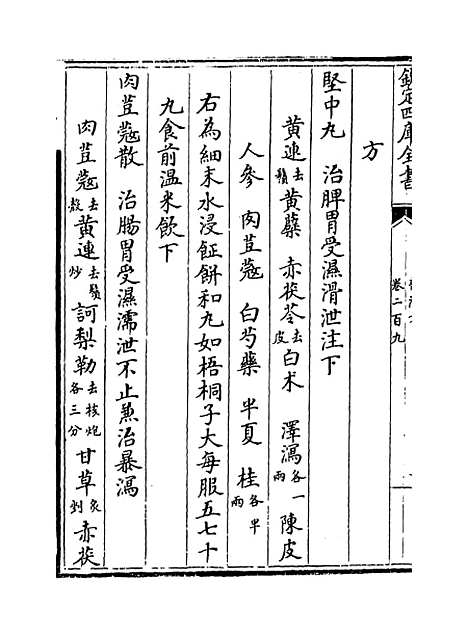 欽定四庫全書
卷二百九
方
堅中丸 治脾胃受濕滑泄注下
黄連去鬚黄蘗 赤茯苓去皮白术 澤瀉各一兩陳皮
人參 肉荳蔻 白芍藥 半夏 桂各半兩
右為細末水浸飪餅和丸如梧桐子大每服五七十
九食前温米飲下
肉荳蔻散 治腸胃受濕濡泄不止兼治暴瀉
肉荳蔻去殻黄連去鬚炒訶梨勒去核炮各三分甘草炙剉赤茯